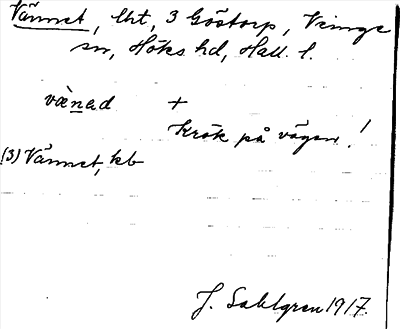 Vännet, lht, 3 Göstorp, Veinge
sn, Höks hd, Hall. l.
vä̀nad +
Krök på vägen!
(3) Vännet, kb
J. Sahlgren 1917.